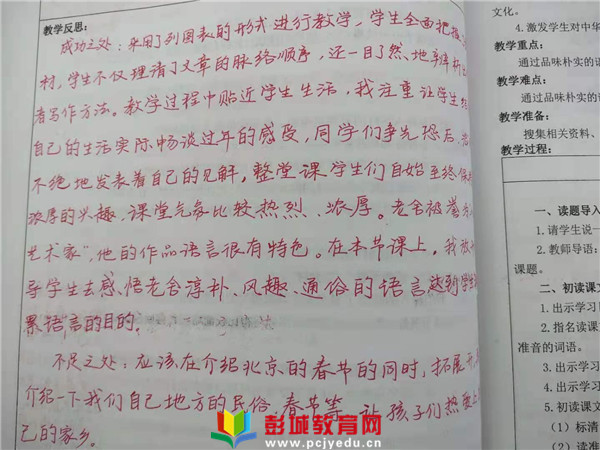 教学反思:
成功之处:采用了列图表的形式进行教学,学生全面把握
材,学生不仅理清了文章的脉络顺序,还一目了然地辨析
者写作方法。教学过程中贴近学生生活,我注重让学生
自己的生活实际畅谈过年的感受,同学们争先恐后、
不绝地发表着自己的见解,整堂课学生们自始至终
浓厚的兴趣,课堂气氛比较热烈、浓厚。老舍被誉为
艺术家",他的作品语言很有特色。在本节课上,我
导学生去感悟老舍淳朴、风趣、通俗的语言达到学生
累语言的目的。
不足之处:应该在介绍北京的春节的同时,拓展
介绍一下我们自己地方的民俗,春节等,让孩子们热爱
己的家乡。
文化。
4. 激发学生对中华
教学重点:
通过品味朴实的语
教学难点:
通过品味朴实的语
教学准备:
搜集相关资料、
教学过程:
一、读题导入
1.请学生说一
2.教师导语:
课题。
二、初读课文
1.出示学习
2.指名读课文
准音的词语。
3.出示学习
4.出示学习
5.初读课文
(1)标清
(2)读准
彭城教育网
www.pcjyedu.cn